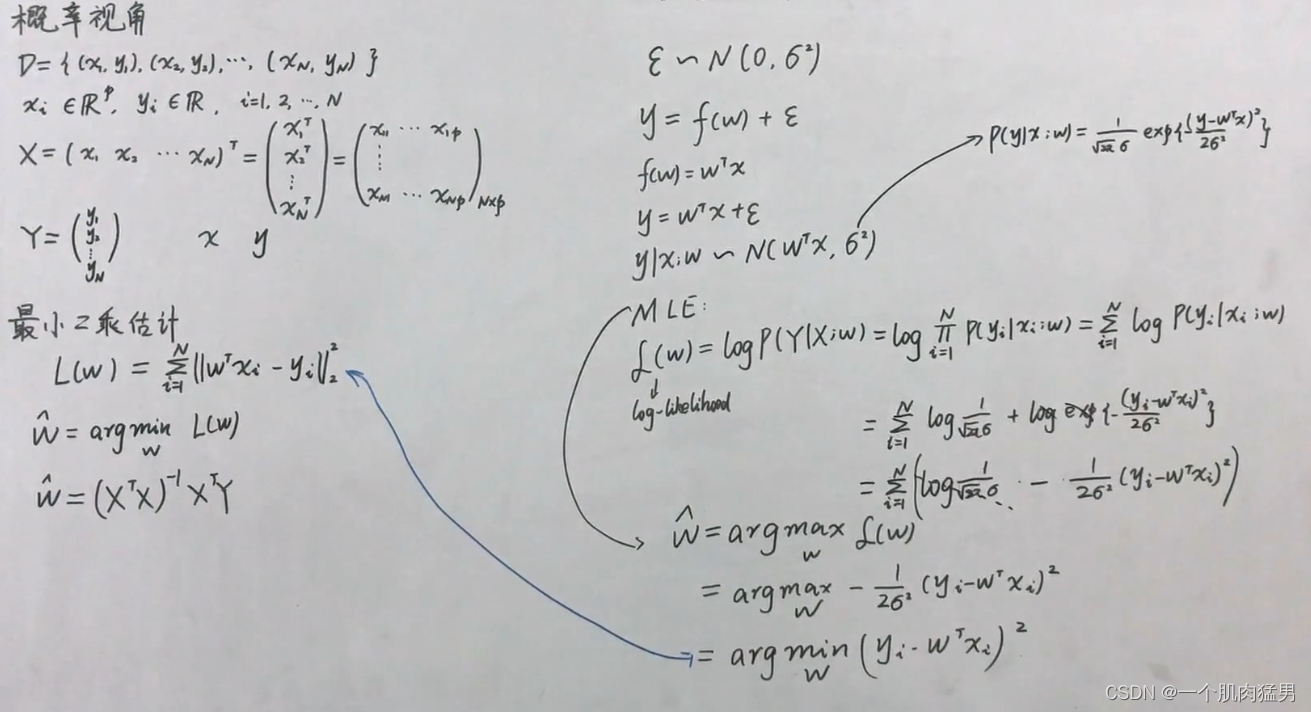 概率视角
D = { (x₁, y₁), (x₂, y₂), ⋯, (x_N, y_N) }
xᵢ ∈ ℝᵖ, yᵢ ∈ ℝ, i=1, 2, ⋯, N
X = (x₁ x₂ ⋯ x_N)ᵀ = (x₁ᵀ x₂ᵀ ⋮ x_Nᵀ) = (x₁₁ ⋯ x₁p ⋮ x_N1 ⋯ x_Np)_N×p
Y = (y₁ y₂ ⋮ y_N) x y
最小2乘估计
L(w) = Σ_{i=1}^{N} ||wᵀxᵢ - yᵢ||₂²
ŵ = argmin_w L(w)
ŵ = (XᵀX)⁻¹XᵀY
ε ∽ N(0, σ²)
y = f(w) + ε
f(w) = wᵀx
y = wᵀx + ε
y|x;w ∽ N(wᵀx, σ²)
P(y|x;w) = 1/(√2π σ) exp{(y-wᵀx)²/2σ²}
MLE:
ℒ(w) = log P(Y|X;w) = log ∏_{i=1}^{N} P(yᵢ|xᵢ;w) = Σ_{i=1}^{N} log P(yᵢ|xᵢ;w)
log-likelihood
= Σ_{i=1}^{N} log 1/(√2π σ) + log exp{-(yᵢ-wᵀxᵢ)²/2σ²}
= Σ_{i=1}^{N} (log 1/(√2π σ) - 1/2σ² (yᵢ-wᵀxᵢ)²)
ŵ = argmax_w ℒ(w)
= argmax_w - 1/2σ² (yᵢ-wᵀxᵢ)²
= argmin_w (yᵢ-wᵀxᵢ)²
CSDN @一个肌肉猛男